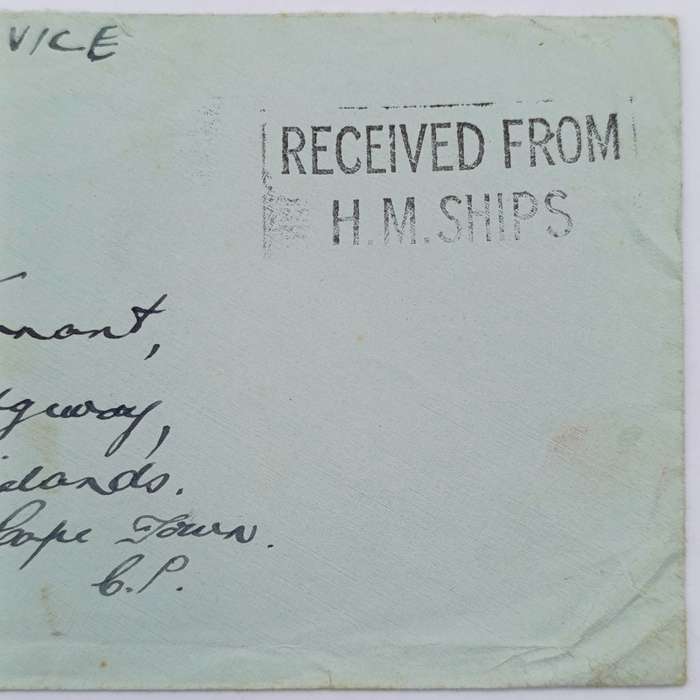 VICE
RECEIVED FROM
H.M.SHIPS
nnant,
dgway,
idands.
Cape Town.
C.P.